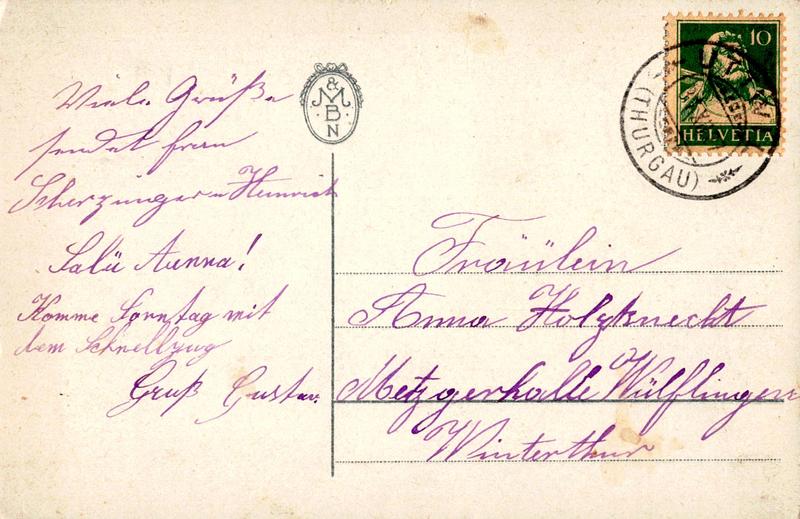 Viele Grüße
sendet frau
Scherzinger u Heinrich
Salü Aunna!
Komme Sonntag mit
dem Schnellzug
Gruß Gustav.
& M B N
10
HELVETIA
(THURGAU)
Fräulein
Anna Holzknecht
Metzgerhalle Wülflingen
Winterthur